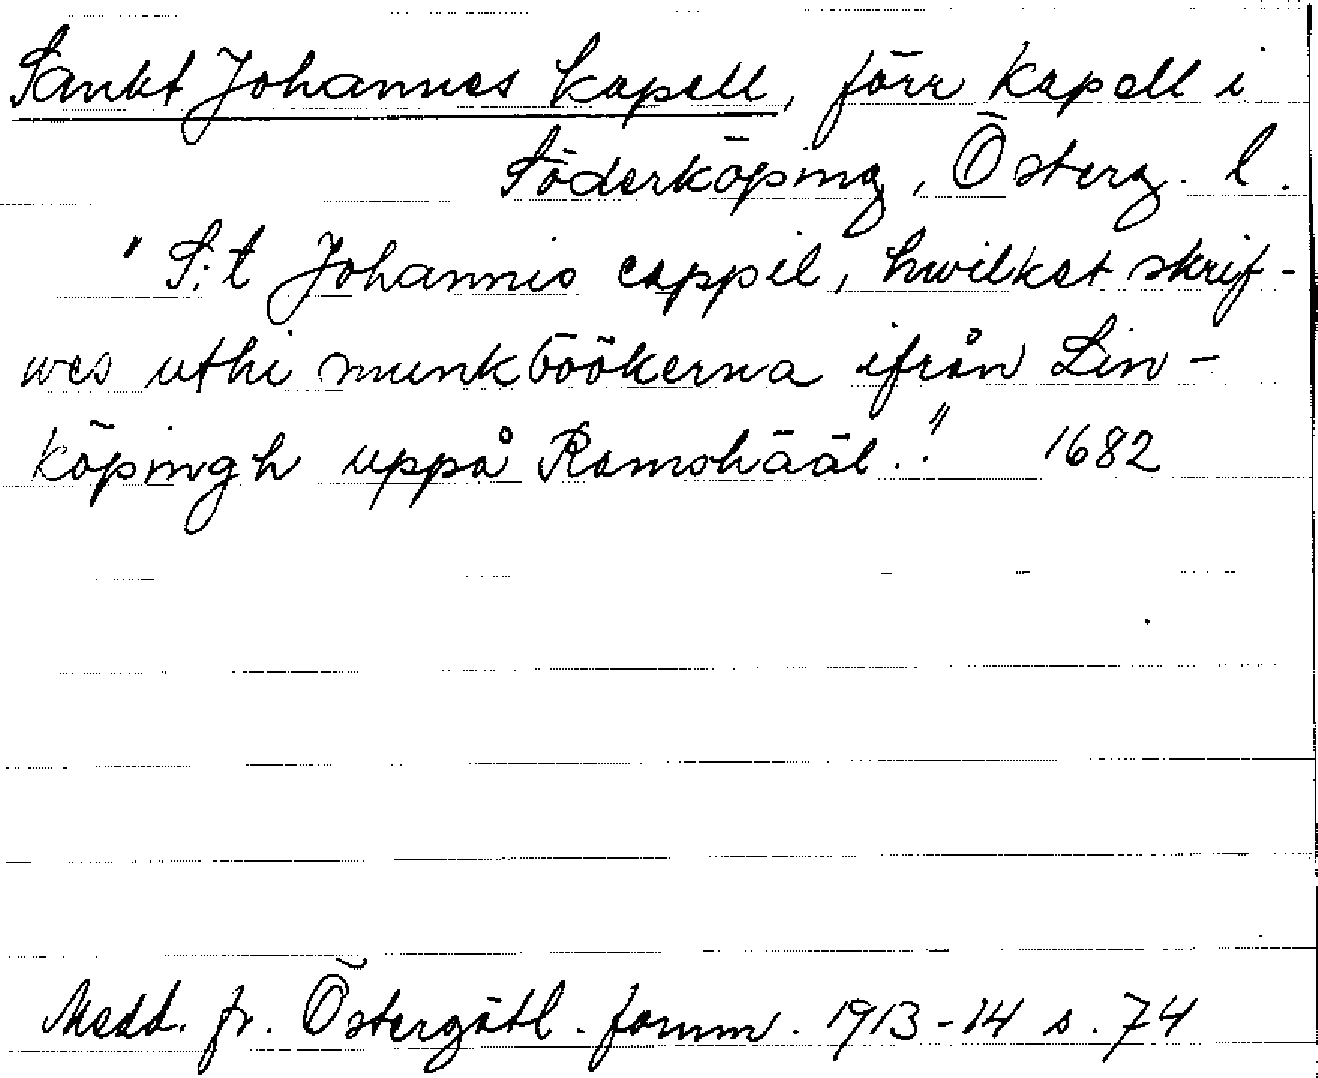 Sankt Johannes kapell, förr kapell i
Söderköping, Österg. l.
"S:t Johannis cappil, hwilket skrif-
wes uthi munkböökerna ifrån Lin-
köpingh uppå Ramshääl.." 1682
Medd. fr. Östergötl. fornm. 1913-14 s. 74